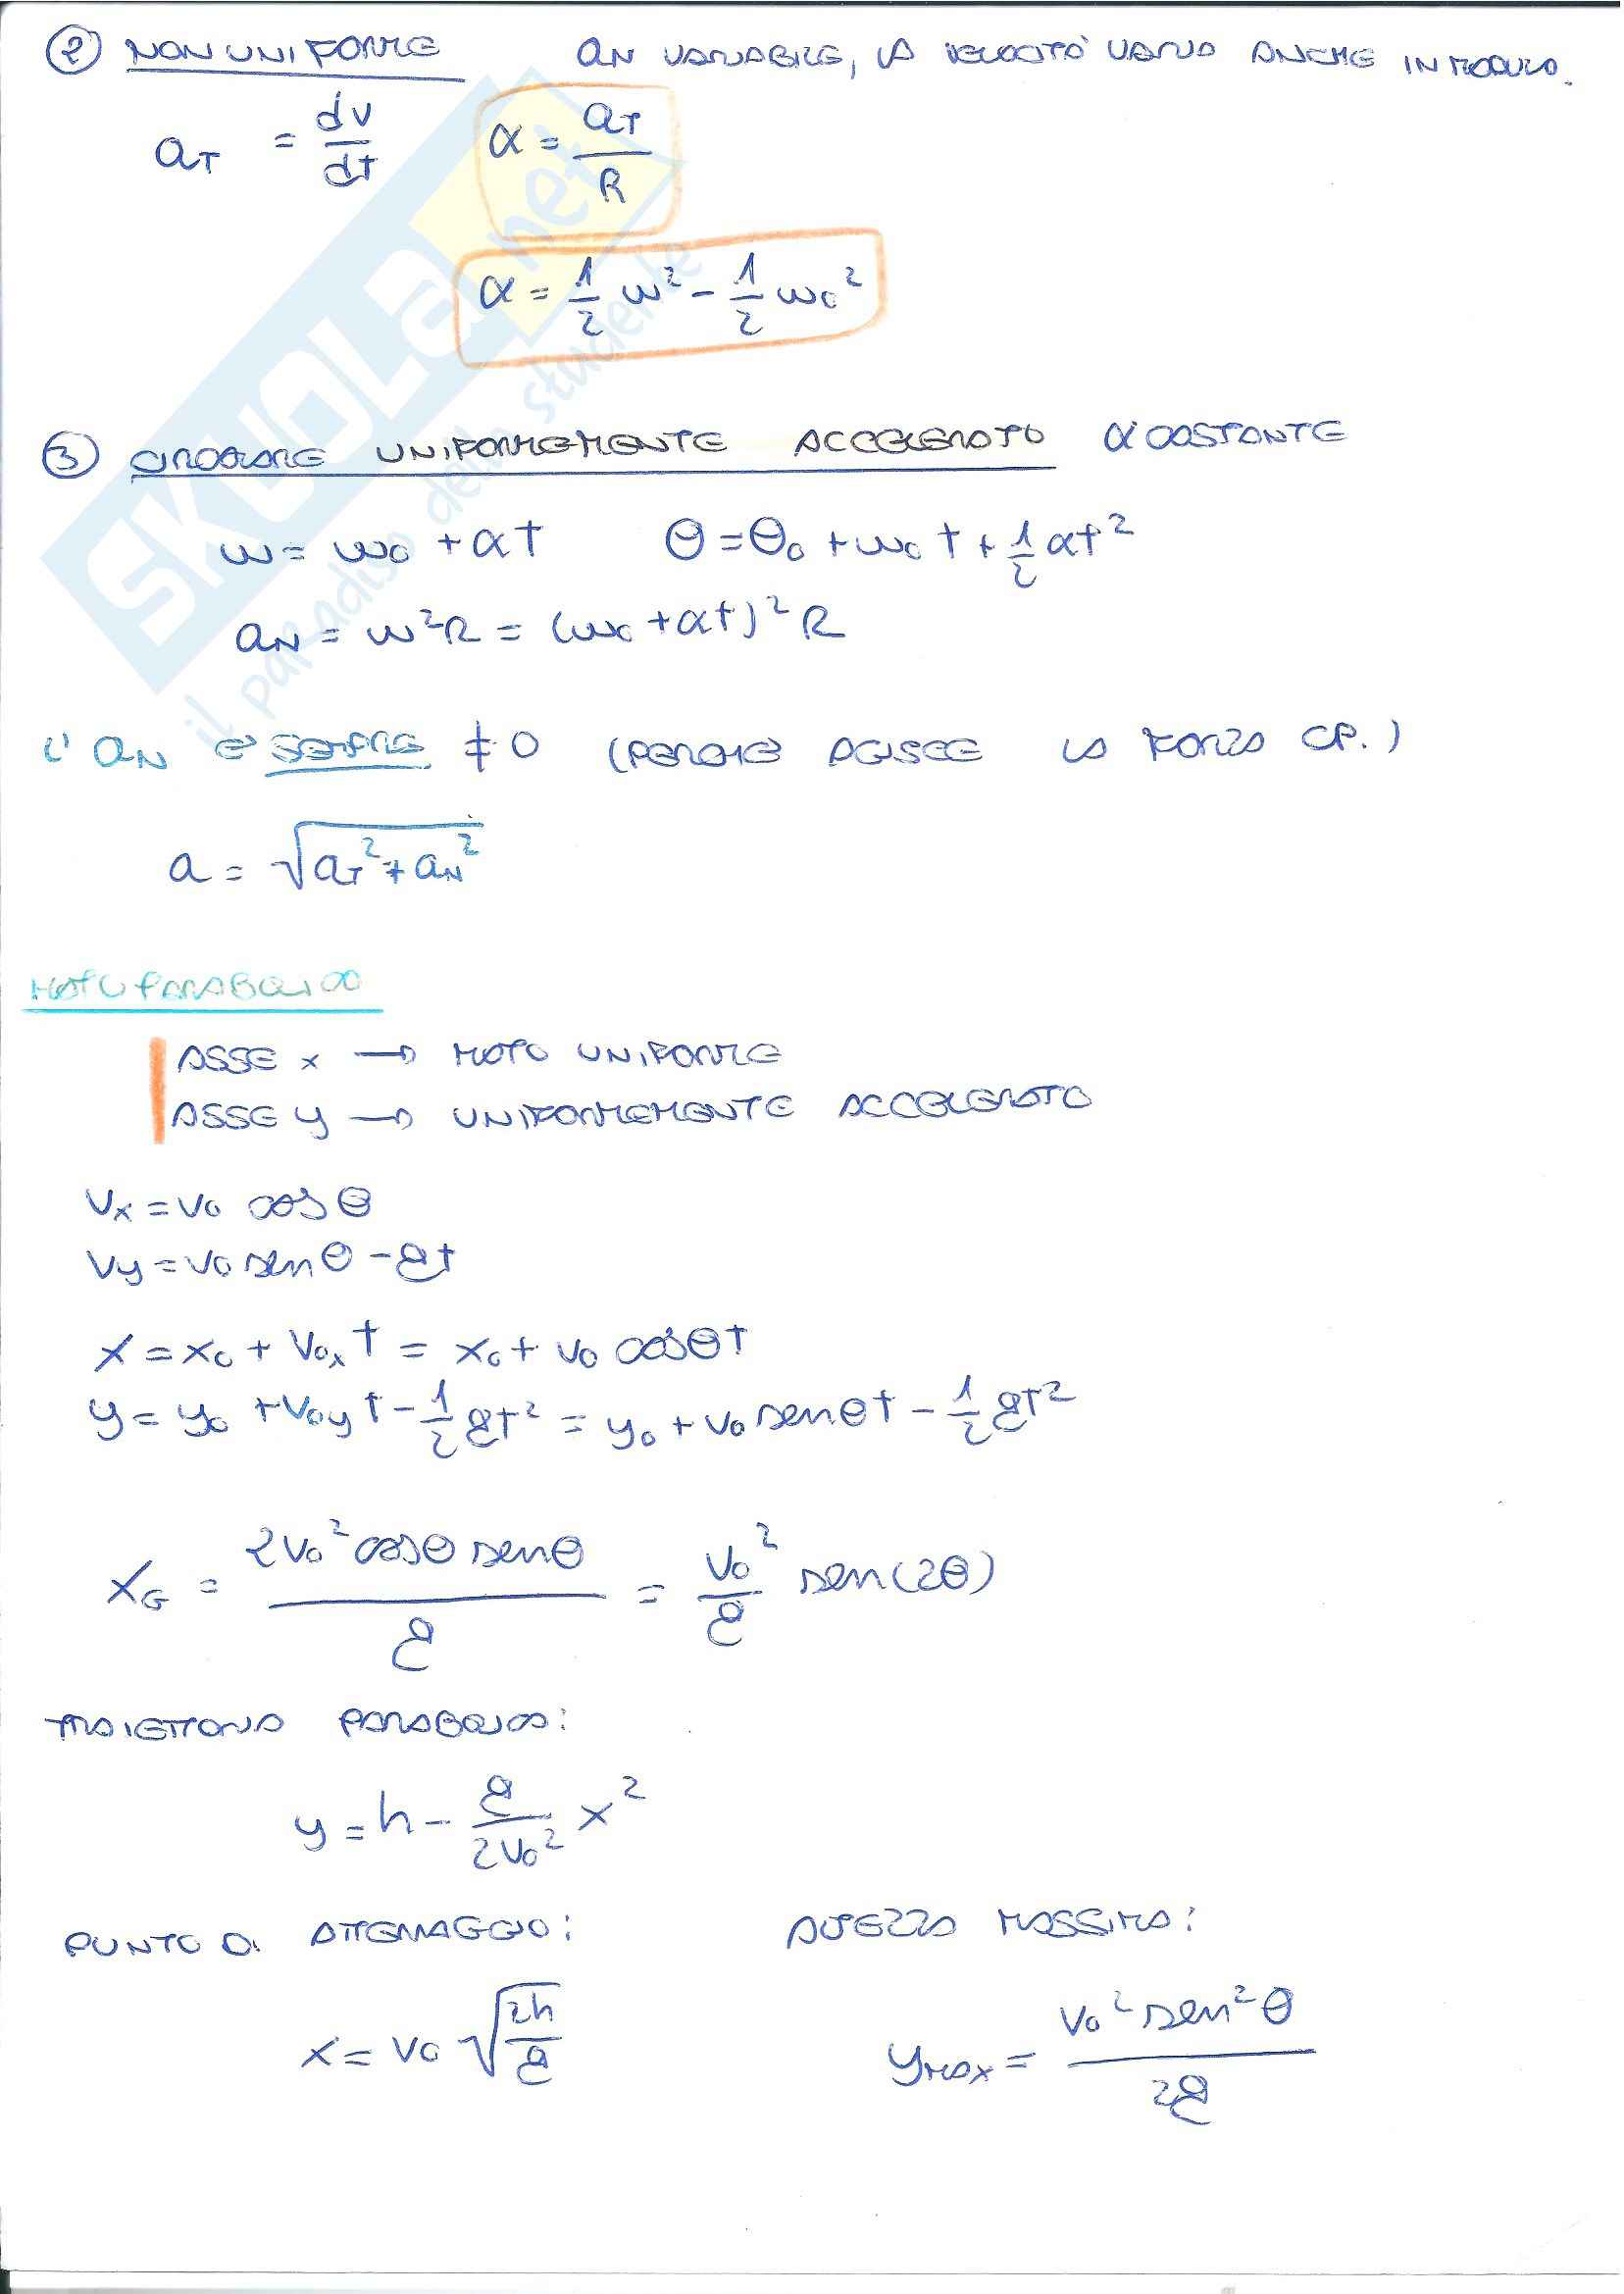 ② NON UNIFORME aN VARIABILE, LA VELOCITÀ VARIA ANCHE IN MODULO.
aT = dv/dt α = aT/R
α = 1/2 ω² - 1/2 ω0²
③ CIRCOLARE UNIFORMEMENTE ACCELERATO α COSTANTE
ω = ω0 + αt θ = θ0 + ω0 t + 1/2 αt²
aN = ω²R = (ω0 + αt)² R
L' aN È SEMPRE ≠ 0 (PERCHÈ AGISCE LA FORZA CP.)
a = √(aT² + aN²)
MOTO PARABOLICO
ASSE x → MOTO UNIFORME
ASSE y → UNIFORMEMENTE ACCELERATO
vx = v0 cosθ
vy = v0 senθ - gt
x = x0 + v0x t = x0 + v0 cosθt
y = y0 + v0y t - 1/2 gt² = y0 + v0 senθt - 1/2 gt²
xG = 2v0² cosθ senθ / g = v0²/g sen(2θ)
TRAIETTORIA PARABOLICA:
y = h - g/2v0² x²
PUNTO DI ATTERRAGGIO: ALTEZZA MASSIMA:
x = v0 √(2h/g) ymax = v0² sen²θ / 2g
SKUOLA.net
il paradiso dello studente